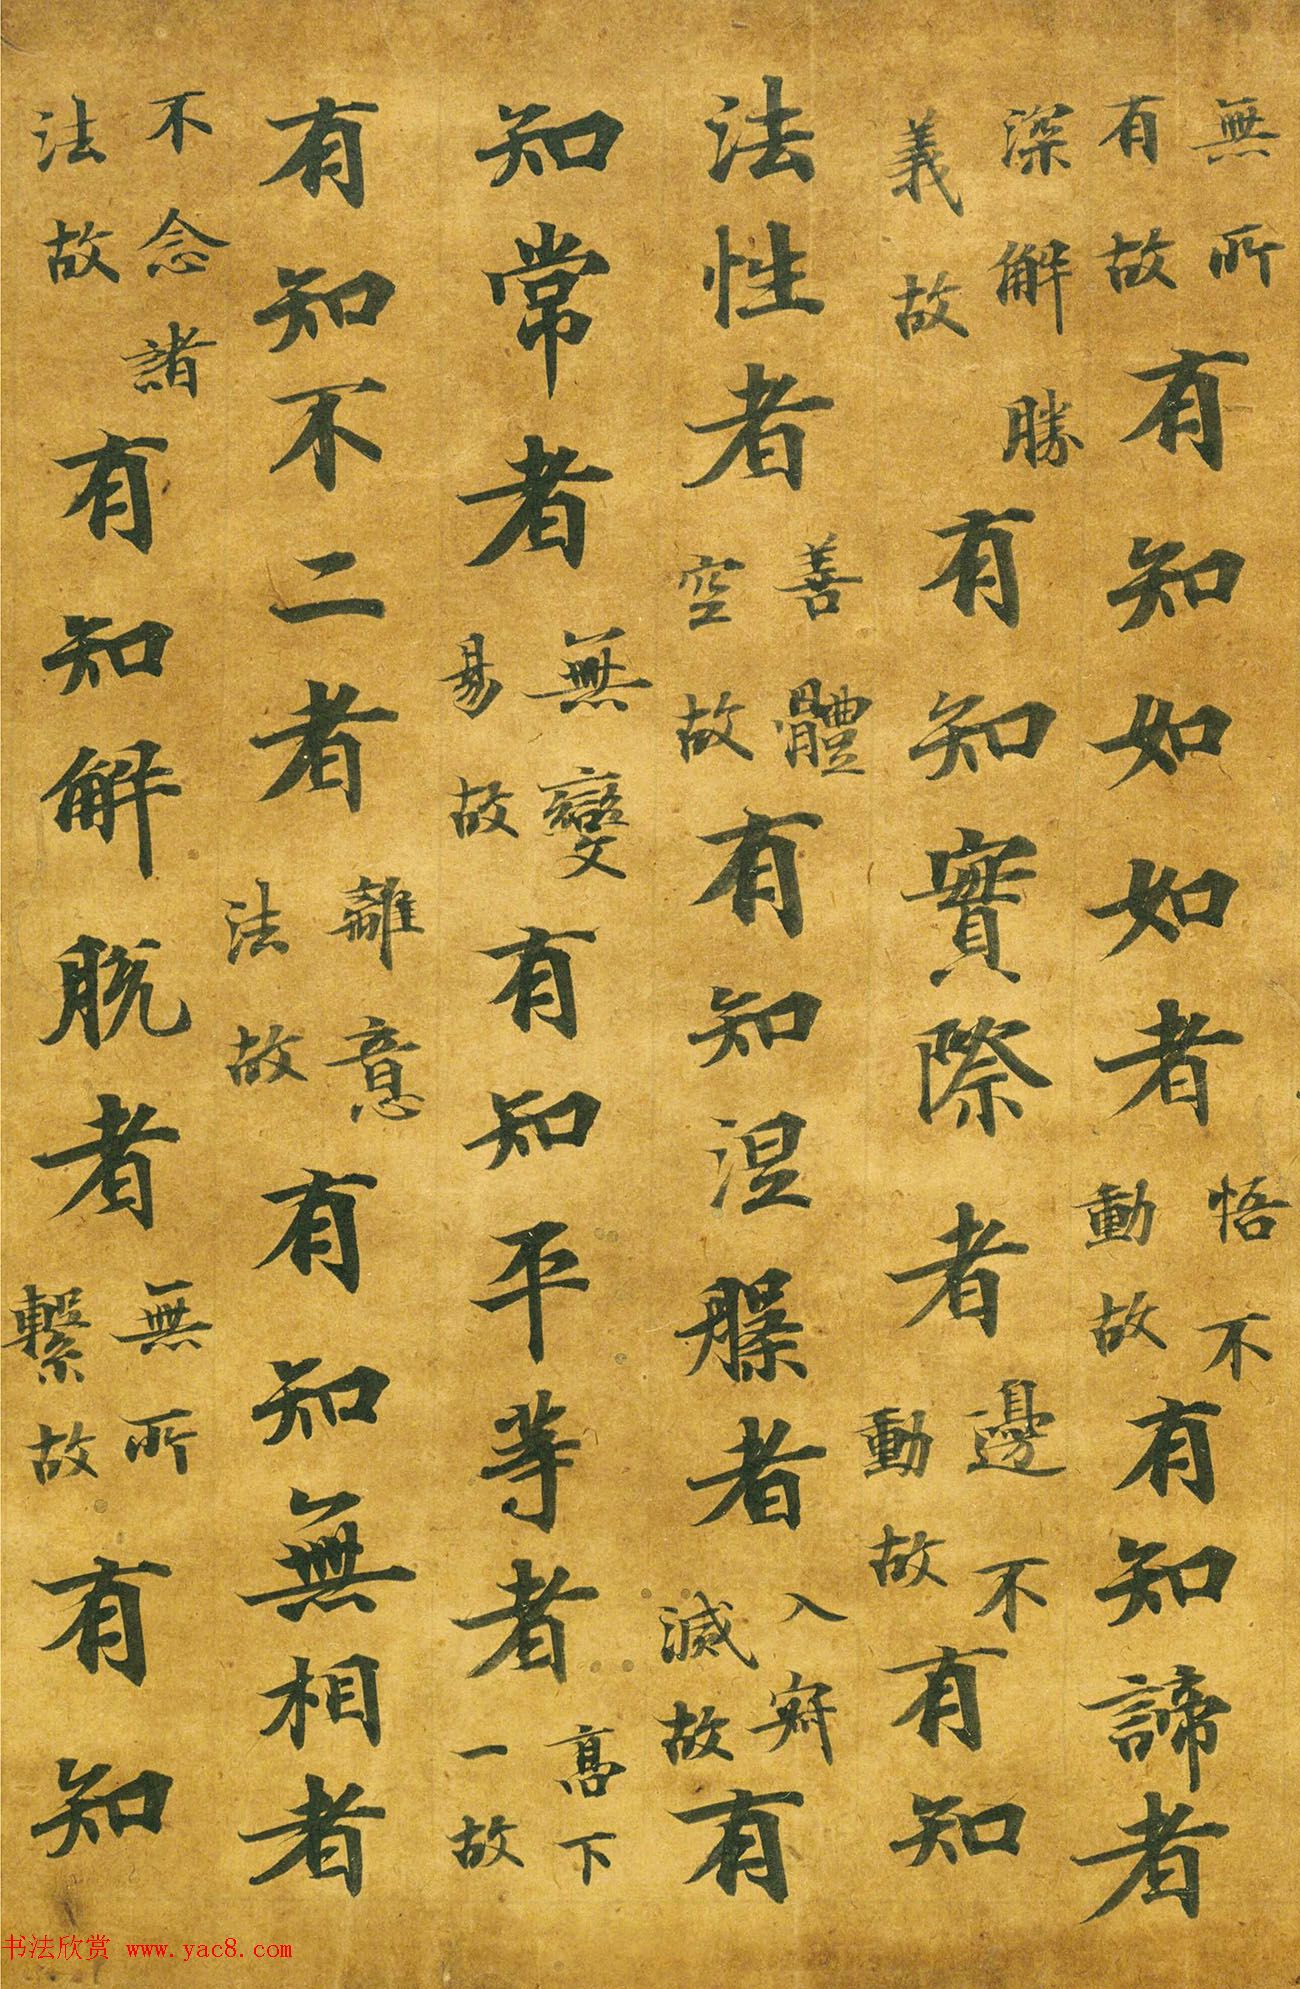 無所有故有知如如者悟不動故有知諦者
深解勝義故有知實際者邊不動故有知
法性者善體空故有知涅槃者入寂滅故有
知常者無變易故有知平等者高下一故
有知不二者離意法故有知無相者
不念諸法故有知解脫者無所繫故有知
书法欣赏 www.yac8.com